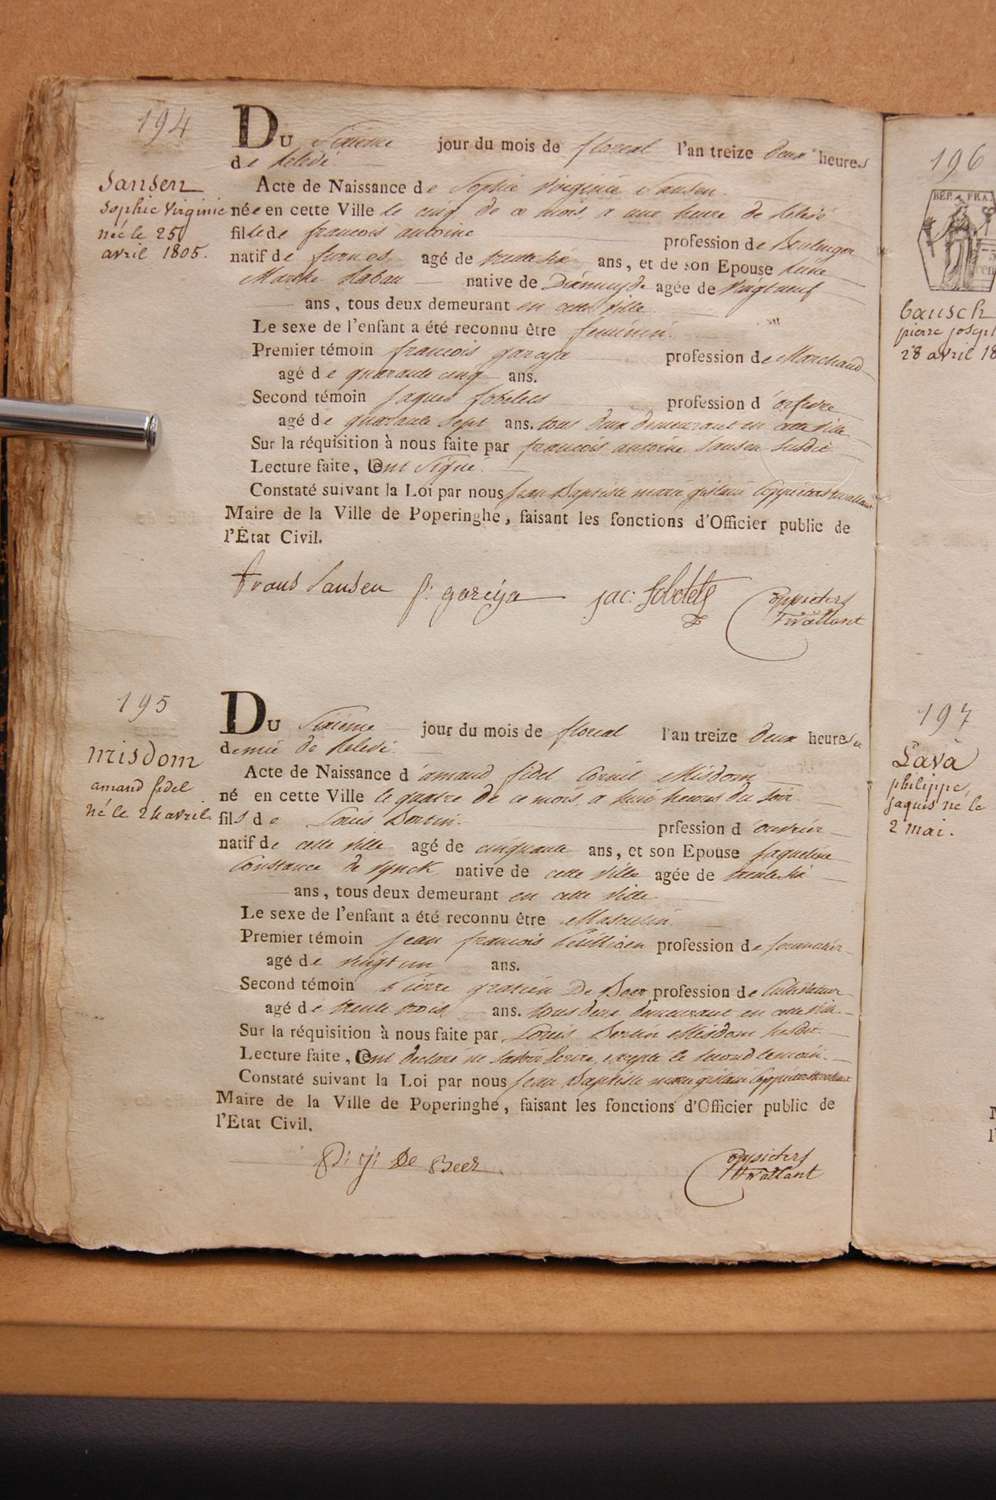 194
Sansen
Sophie Virginie
née le 25
avril 1805.
Du Sixieme jour du mois de floreal l'an treize deux heures
de relevé
Acte de Naissance de Sophie Virginie Sansen
née en cette Ville le cinq de ce mois a une heure de relevé
fille de francois antoine profession de Boulanger
natif de furnes agé de trente six ans, et de son Epouse Anne
Marthe native de Dixmude agée de vingt neuf
ans, tous deux demeurant en cette ville
Le sexe de l'enfant a été reconnu être feminin.
Premier témoin francois goreija profession de Marchand
agé de quarante cinq ans.
Second témoin Jaques sobelets profession d'orfevre
agé de quarante sept ans. tous deux demeurant en cette ville
Sur la réquisition à nous faite par francois antoine Sansen susdit
Lecture faite, Ont signé.
Constaté suivant la Loi par nous Jean Baptiste marie
Maire de la Ville de Poperinghe, faisant les fonctions d'Officier public de
l'État Civil.
frans Sansen f: goreija jac: sobelets
195
misdom
amand fidel
né le 24 avril
Du Sixieme jour du mois de floreal l'an treize deux heures et
demie de relevé
Acte de Naissance d'amand fidel Corneil Misdom
né en cette Ville le quatre de ce mois a huit heures du soir
fils de Louis Bertin. prfession d'ouvrier
natif de cette ville agé de cinquante ans, et son Epouse Jaqueline
Constance de Synck native de cette ville agée de trente six
ans, tous deux demeurant en cette ville
Le sexe de l'enfant a été reconnu être Masculin
Premier témoin Jean francois profession de
agé de vingt un ans.
Second témoin Pierre De Beer profession de Cultivateur
agé de trente trois ans. tous deux demeurant en cette ville
Sur la réquisition à nous faite par Louis Bertin Misdom susdit
Lecture faite, Ont declaré ne savoir ecrire, excepte le second temoin.
Constaté suivant la Loi par nous Jean Baptiste marie
Maire de la Ville de Poperinghe, faisant les fonctions d'Officier public de
l'Etat Civil.
P: j: De Beer
196
REP. FRA.
bausch
pierre joseph
28 avril 18
197
Lava
philippe,
jaques né le
2 mai.